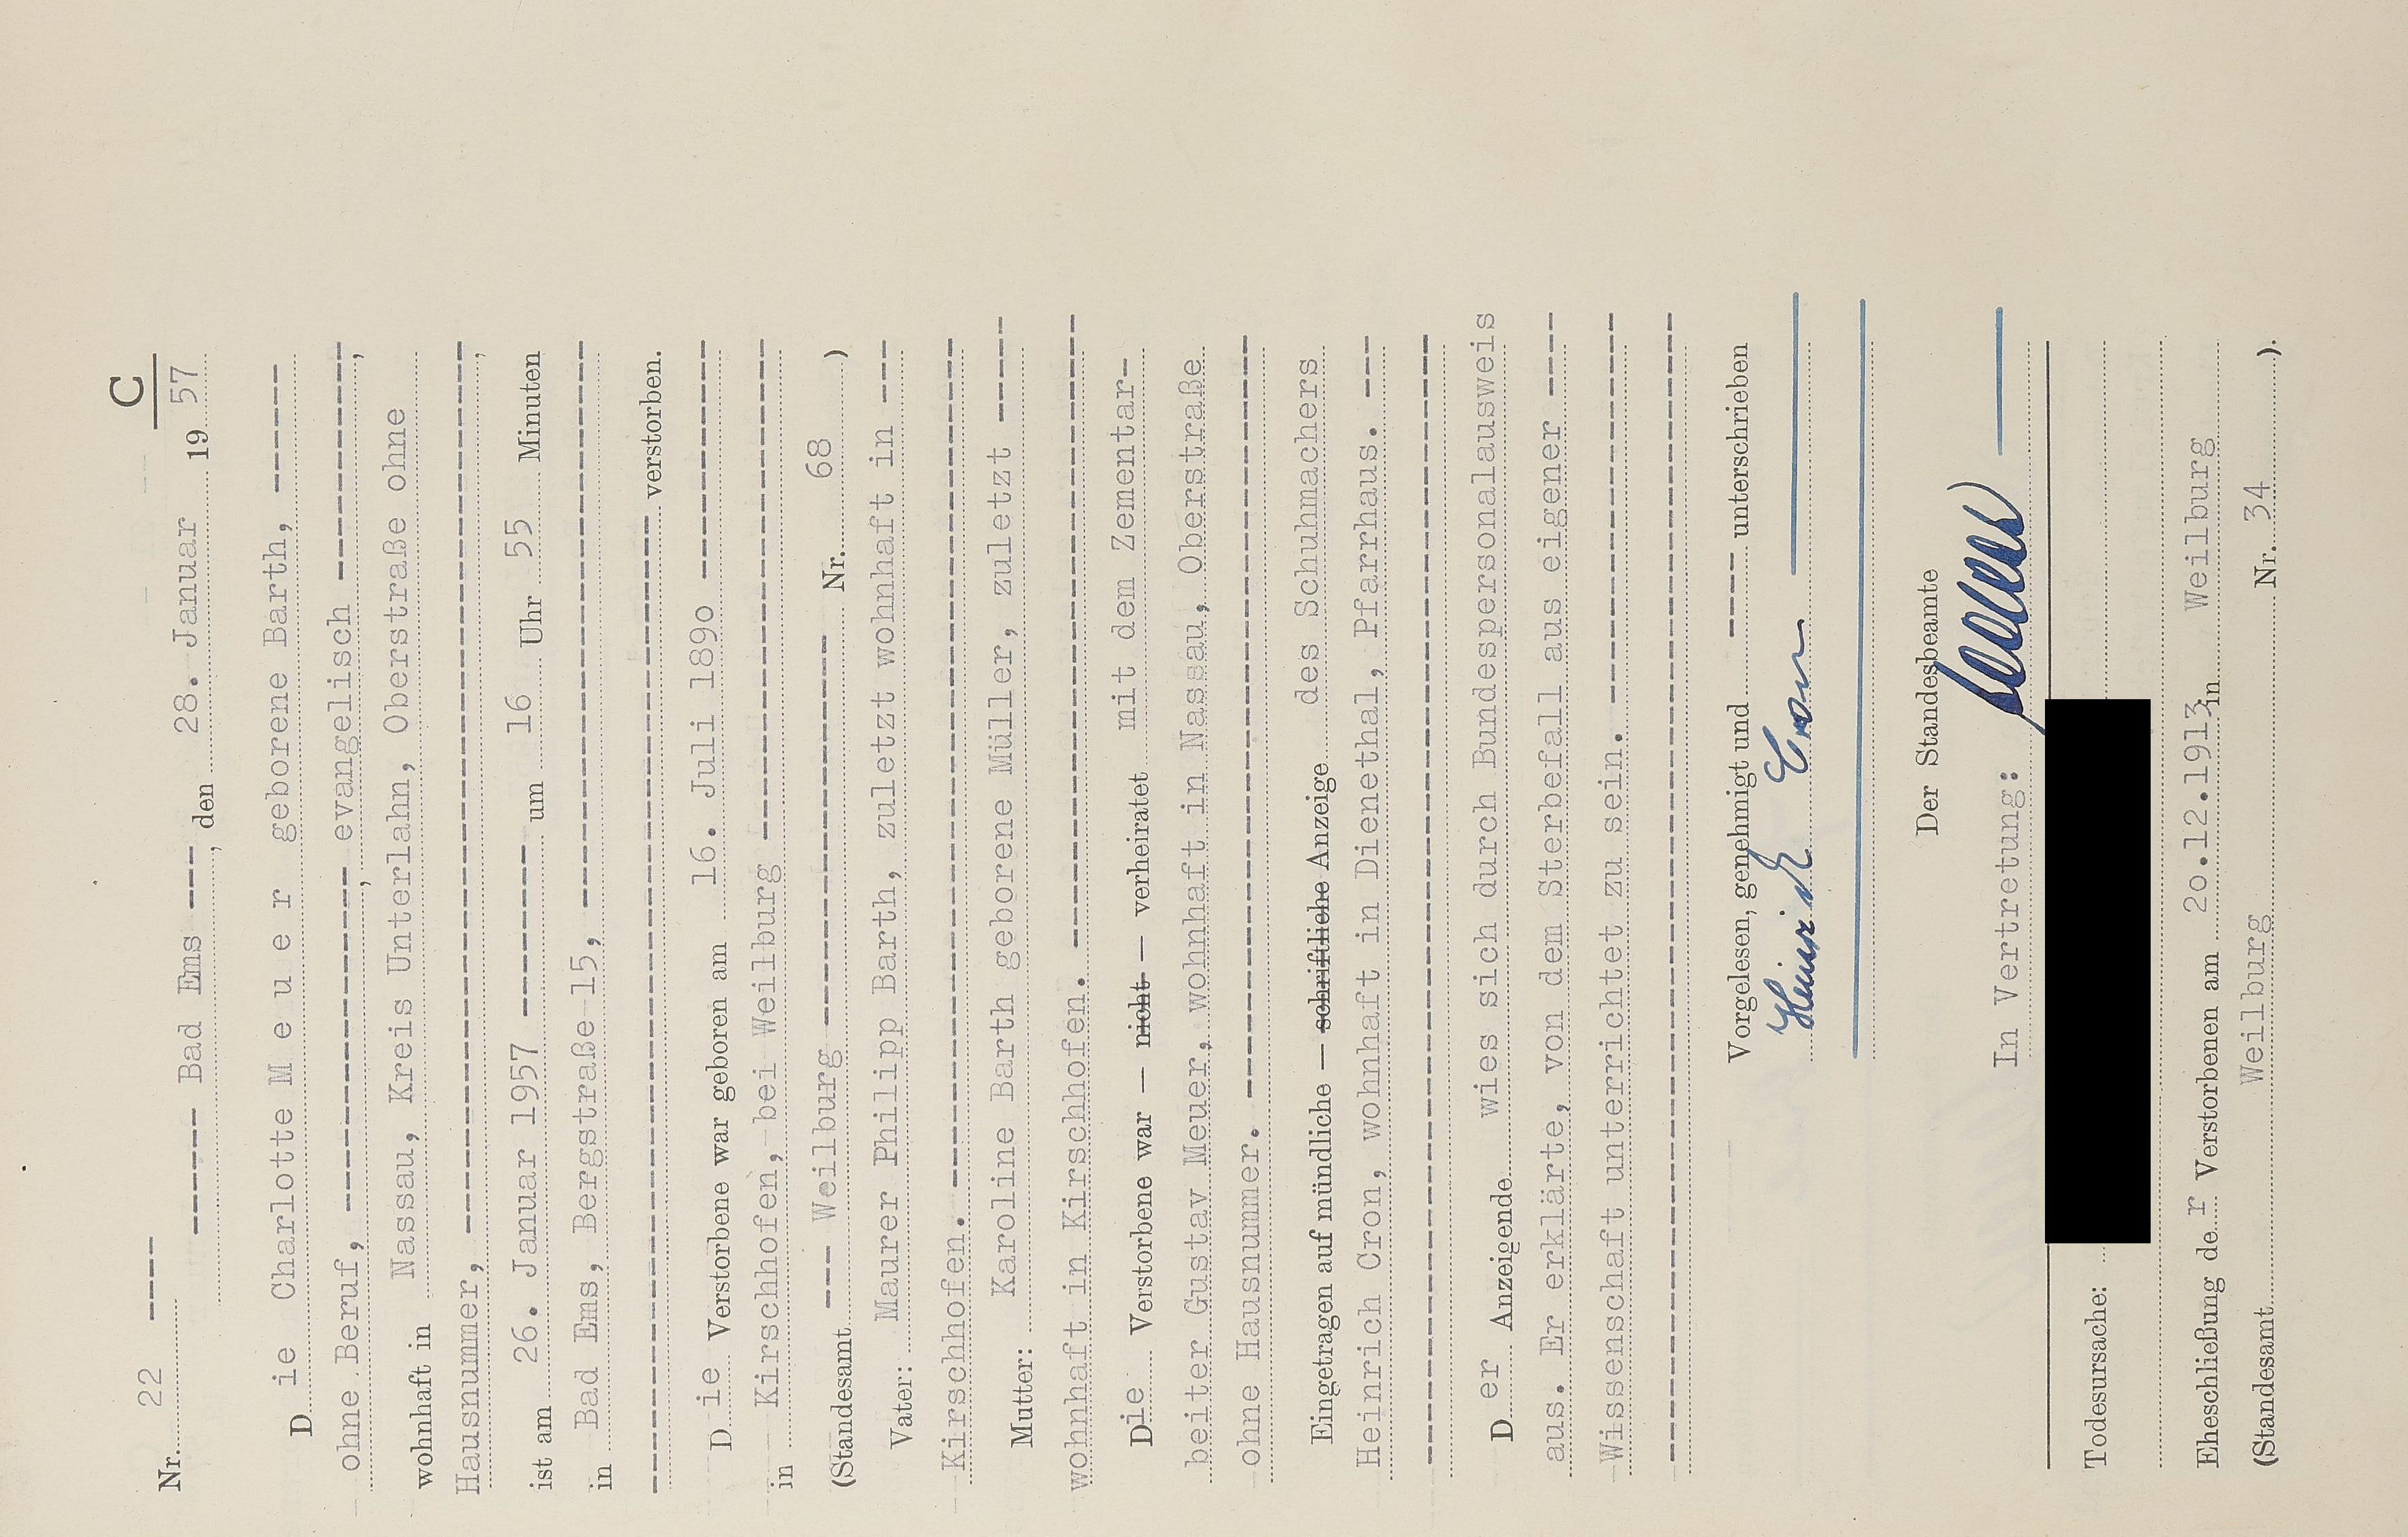 C
Nr. 22 ----
------ Bad Ems ---, den 28. Januar 19 57
Die Charlotte M e u e r geborene Barth, ------
ohne Beruf, ----------------, evangelisch ----------,
wohnhaft in Nassau, Kreis Unterlahn, Oberstraße ohne
Hausnummer, ----------------------------------------,
ist am 26. Januar 1957 -------- um 16 Uhr 55 Minuten
in Bad Ems, Bergstraße 15, --------------------------
---------------------------------------- verstorben.
Die Verstorbene war geboren am 16. Juli 1890 ----------
in Kirschhofen, bei Weilburg ----------------------
(Standesamt --- Weilburg ----------------- Nr. 68 )
Vater: Maurer Philipp Barth, zuletzt wohnhaft in ---
Kirschhofen. --------------------------------------
Mutter: Karoline Barth geborene Müller, zuletzt -----
wohnhaft in Kirschhofen. ----------------------------
Die Verstorbene war — nicht — verheiratet mit dem Zementar-
beiter Gustav Meuer, wohnhaft in Nassau, Oberstraße
ohne Hausnummer. ----------------------------------
Eingetragen auf mündliche — schriftliche Anzeige des Schuhmachers
Heinrich Cron, wohnhaft in Dienethal, Pfarrhaus. ---
---------------------------------------------------
Der Anzeigende wies sich durch Bundespersonalausweis
aus. Er erklärte, von dem Sterbefall aus eigener -----
Wissenschaft unterrichtet zu sein. -----------------
----------------------------------------------------
Vorgelesen, genehmigt und ---- unterschrieben
Heinrich Cron
Der Standesbeamte
In Vertretung:
Todesursache:
Eheschließung der Verstorbenen am 20.12.1913 in Weilburg
(Standesamt Weilburg Nr. 34 ).